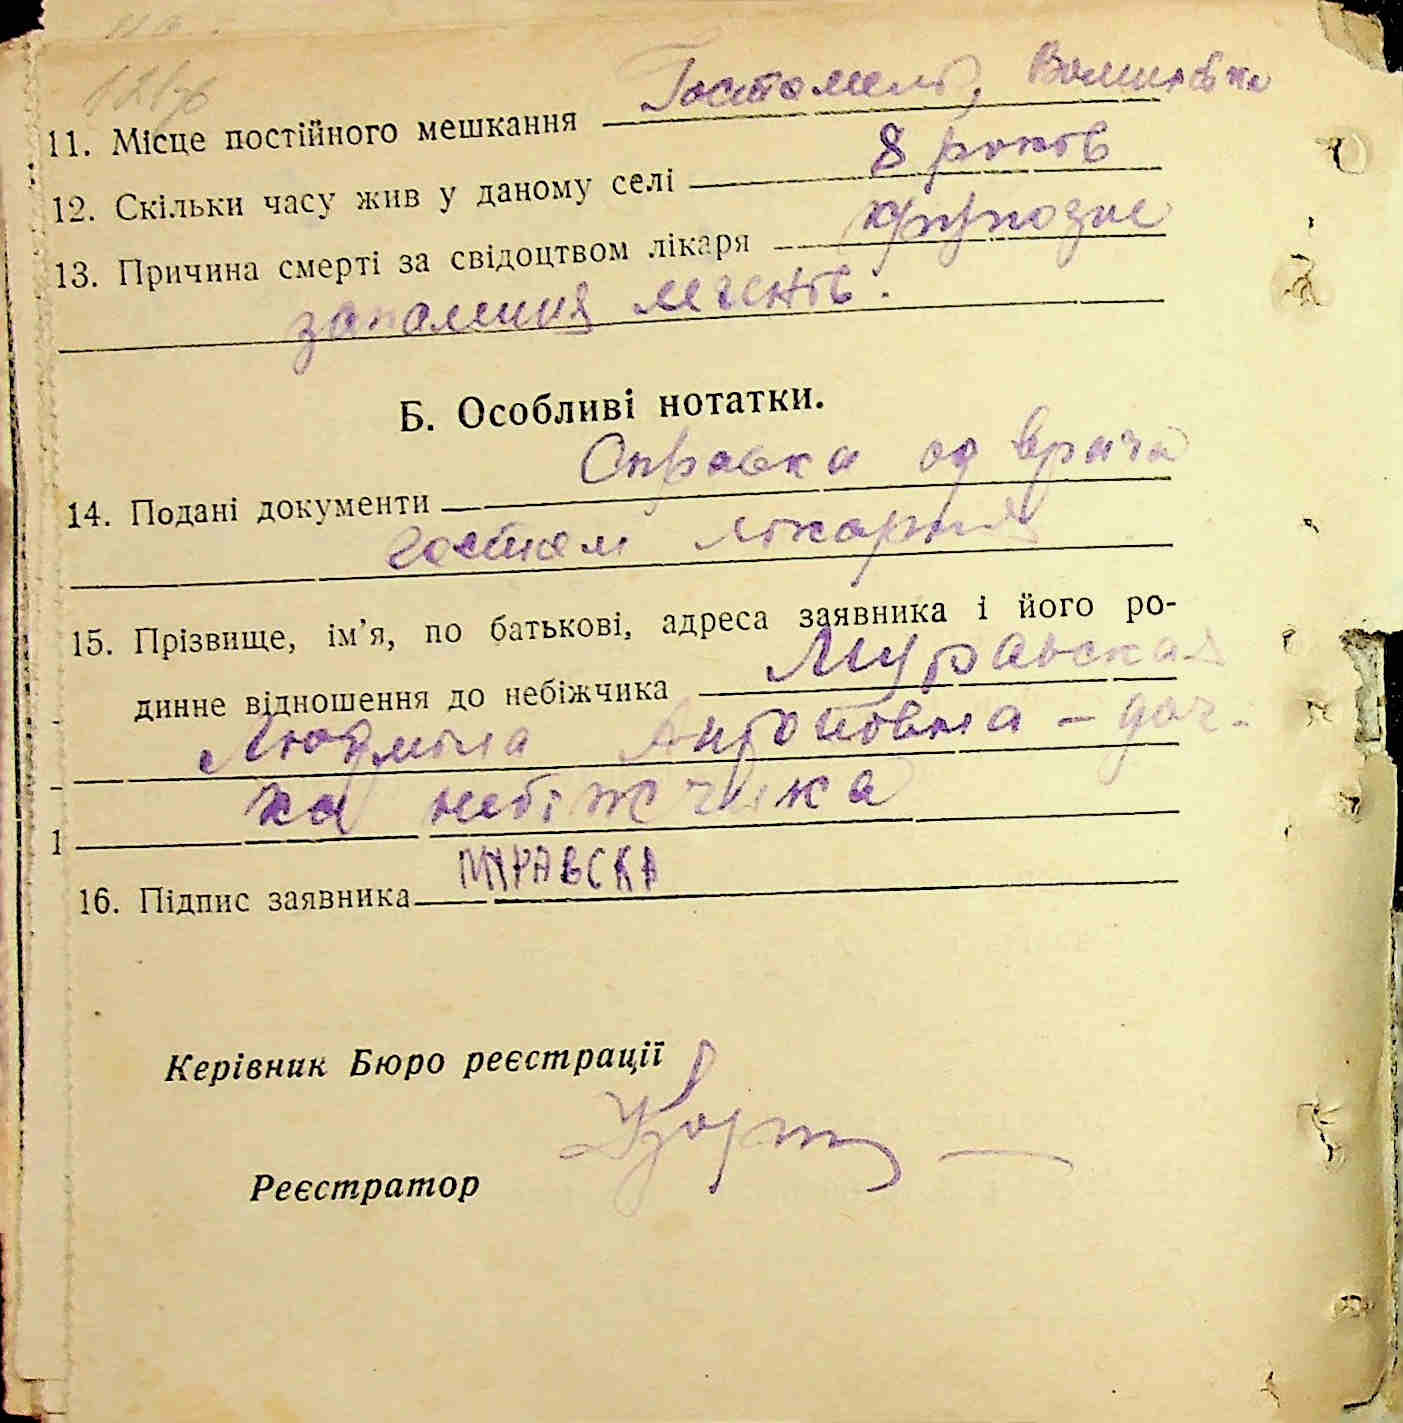 11. Місце постійного мешкання Гостомель,
12. Скільки часу жив у даному селі 8 років
13. Причина смерті за свідоцтвом лікаря крупозне
запалиння легенів.
Б. Особливі нотатки.
14. Подані документи Справка од врача
гостом лікарня
15. Прізвище, ім’я, по батькові, адреса заявника і його ро-
динне відношення до небіжчика Муравская
Людміла Антоновна – доч-
ка небіжчика
1
16. Підпис заявника МУРАВСКА
Керівник Бюро реєстрації
Реєстратор